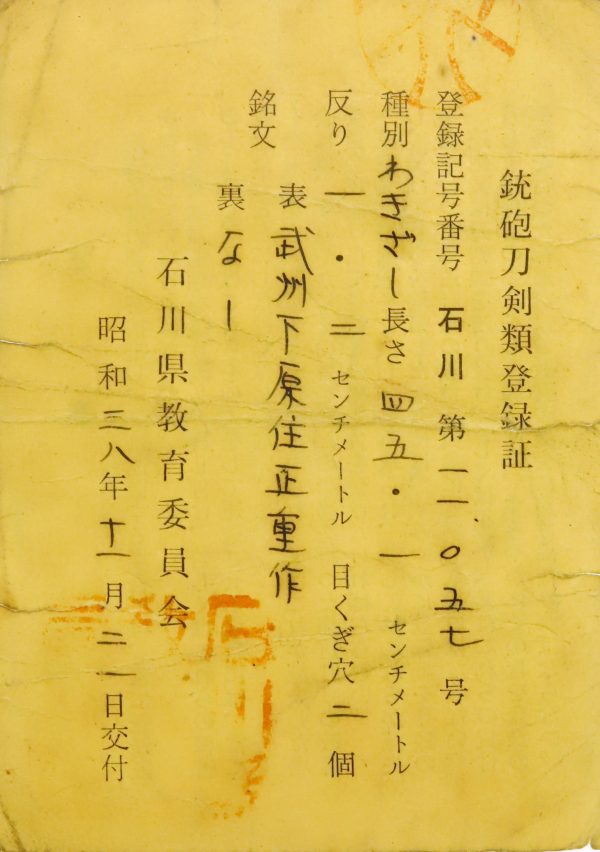 銃砲刀剣類登録証
登録記号番号 石川 第 一一、〇五七 号
種別 わきざし 長さ 四五・一 センチメートル
反り 一・二 センチメートル 目くぎ穴 二 個
銘文 表 武州下原住正重作
裏 なし
石川県教育委員会
昭和三八年十一月二一日交付